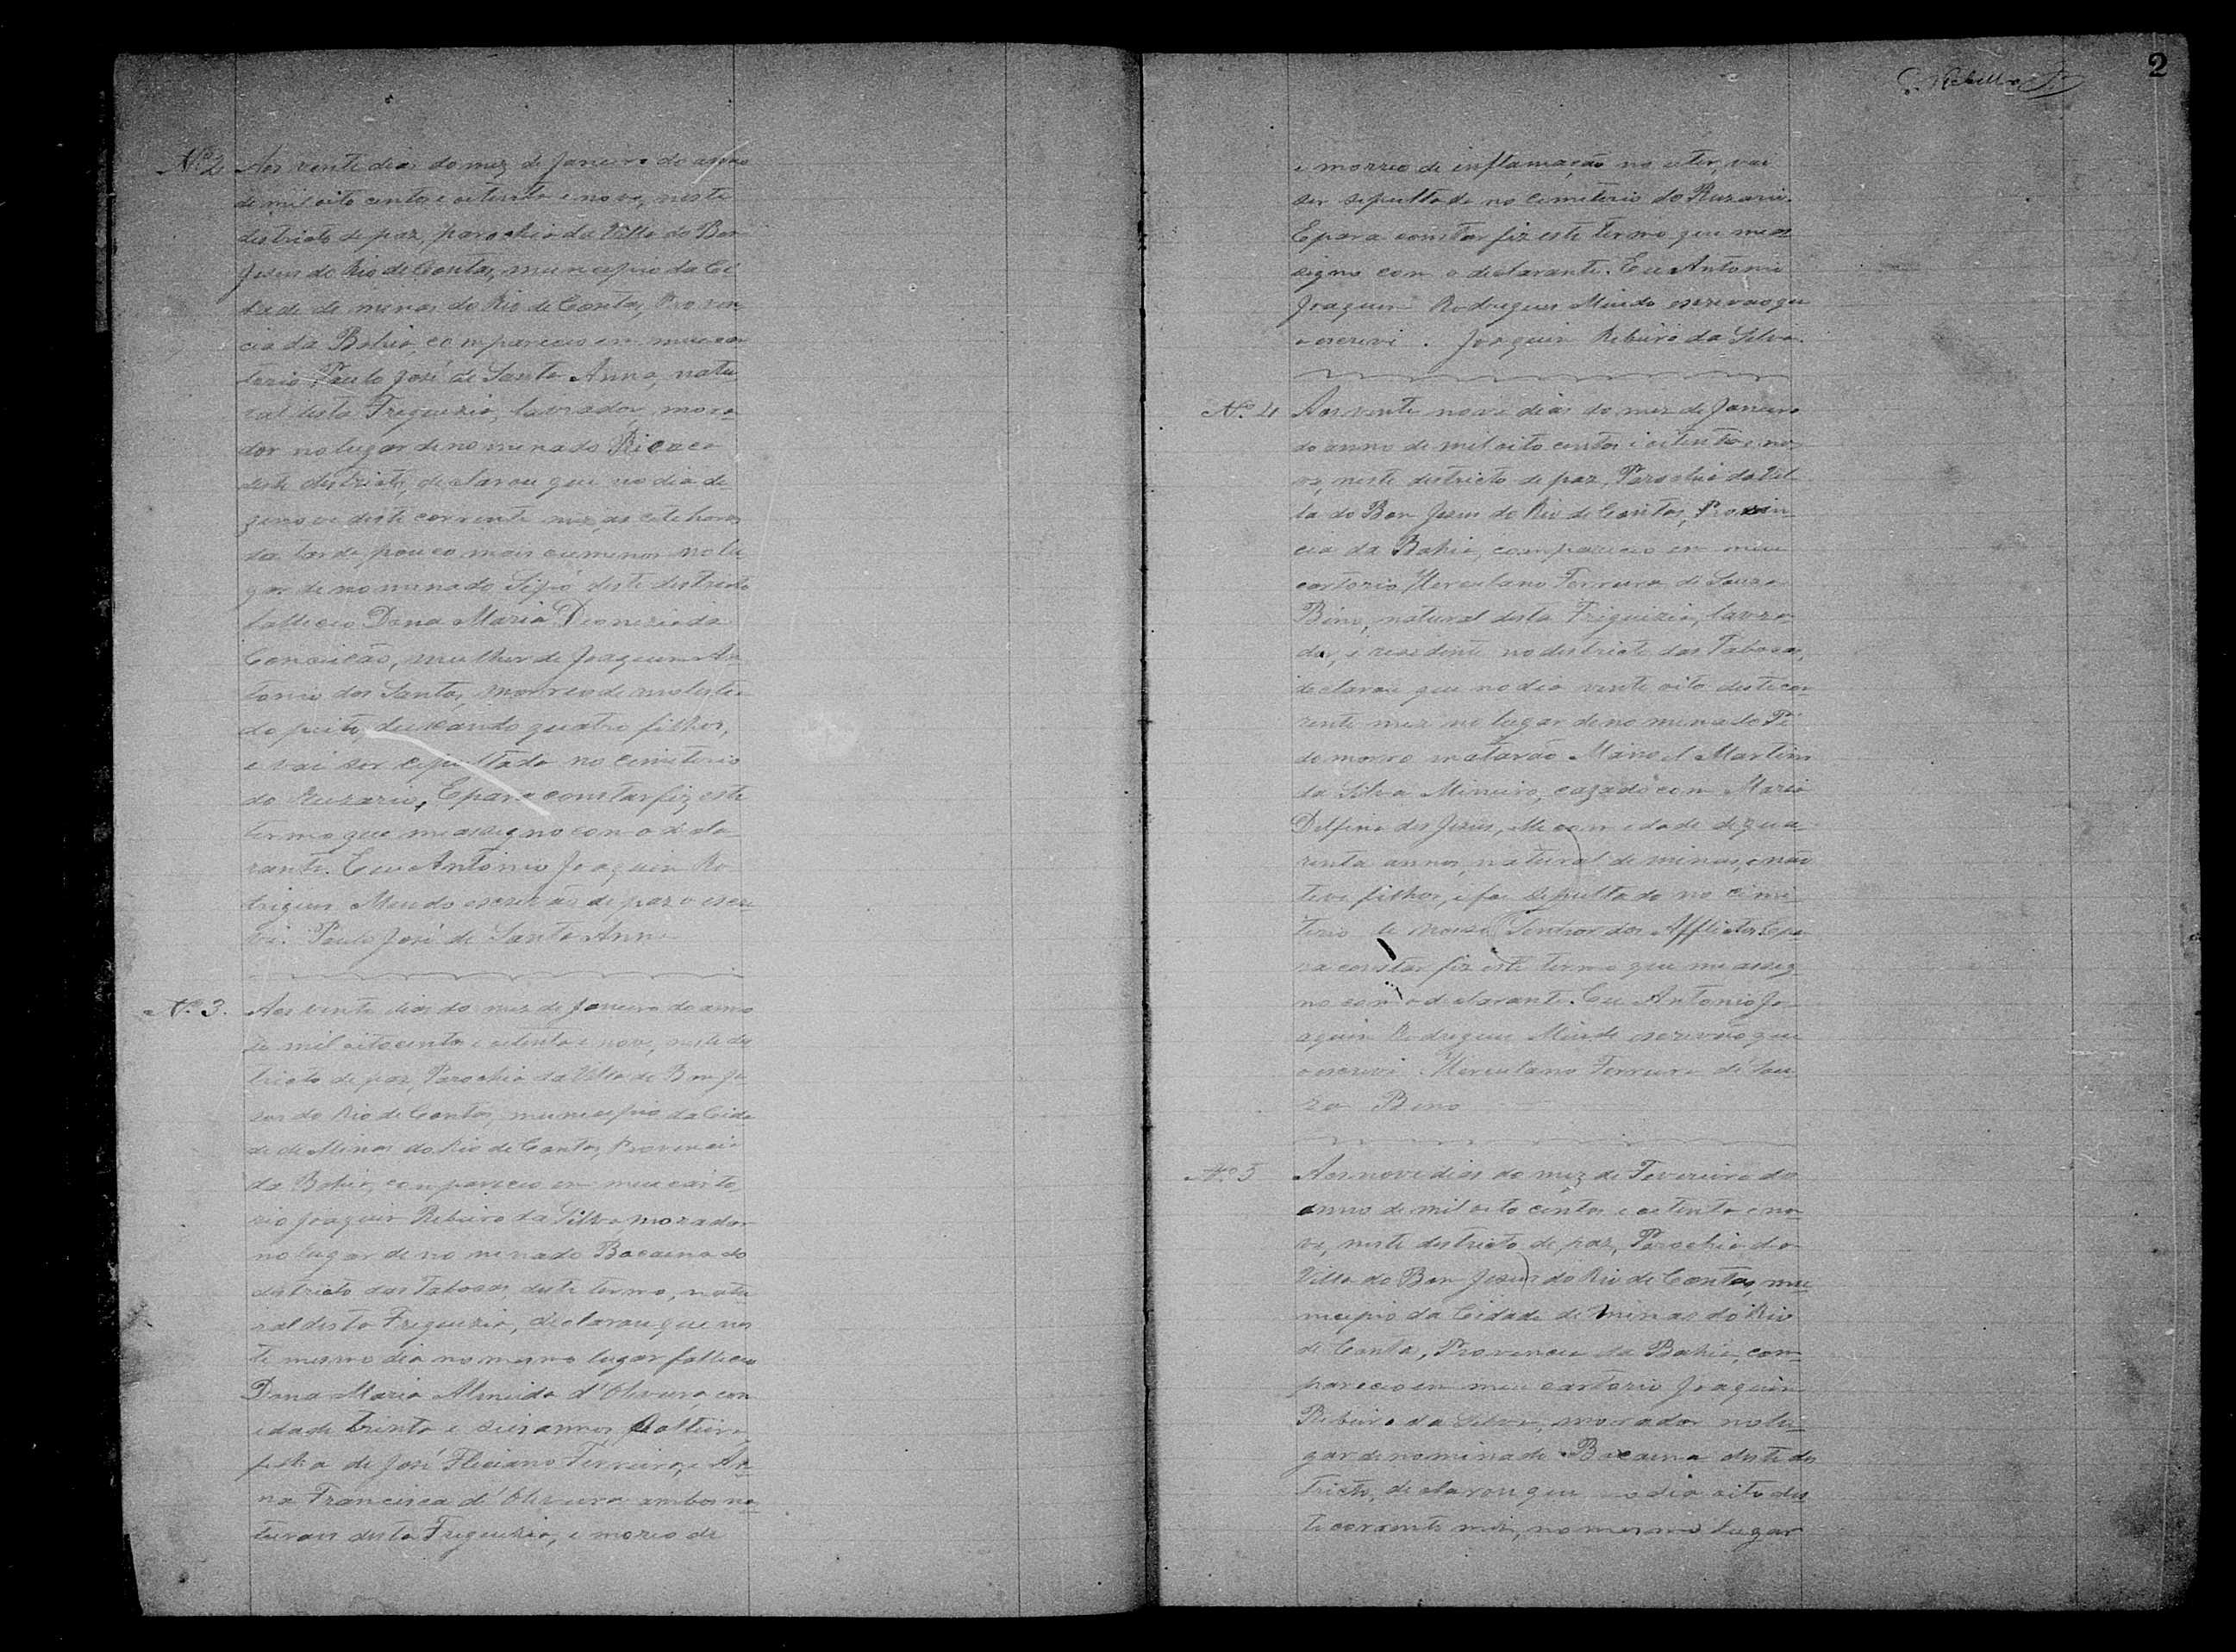 Nº 2 Aos vente dias do mez de Janeiro do anno
de mil oito centos e oitenta e nove, neste
destricto de paz, parochia da Villa do Bom
Jesus do Rio de Contas, municipio da Ci
dade de minas do Rio de Contas, Provin
cia da Bahia, compareceo em meu car
torio Paulo José de Santa Anna, natu
ral desta Freguezia, lavrador, mora
dor no lugar denominado
deste destricto, declarou que no dia de
zenove deste corrente mez, as cete horas
da tarde pouco mais ou menos no lu
gar denominado Sipó deste destricto
falleceo Dona Maria Dionizia da
Conceição, mulher de Joaquim An
tonio dos Santos, morreo de molestia
do peito, deixando quatro filhos,
e vai ser sepultada no cimiterio
do Ruzario, E para constar fiz este
termo que me assigno com o decla
rante. Eu Antonio Joaquim Ro
drigues escrivão de paz o escre
vi. Paulo José de Santa Anna
Nº 3. Aos vinte dias do mez de Janeiro do anno
de mil oitocentos e oitenta e nove, neste dis
tricto de paz, Parochia da Villa do Bom Je
sus do Rio de Contas, municipio da Cida
de de Minas do Rio de Contas, Provincia
da Bahia, compareceo em meu carto
rio Joaquim Ribeiro da Silva morador
no lugar denominado Bocaina do
destricto das Tabocas, deste termo, natu
ral desta Freguezia, declarou que nes
te mesmo dia no mesmo lugar falleceo
Dona Maria Almeida d'Oliveira, com
idade trinta e seis annos solteira
filha de José Fliciano Ferreira, e An
na Francisca d'Oliveira ambos na
turais desta Freguezia, e moreo de
2
e morreo de inflamação no uter, vai
ser sepultada no cemiterio do Ruzario.
E para constar fiz este termo que me as
signo com o declarante. Eu Antonio
Joaquim Rodrigues escrivão que
o escrevi. Joaquim Ribeiro da Silva.
Nº 4 Aos vente nove dias do mez de Janeiro
do anno de mil oito centos e oitenta e no
ve, neste destricto de paz, Parochia da Vil
la do Bom Jesus do Rio de Contas, Provin
cia da Bahia, compareceo em meu
cartorio Herculano Ferreira de Souza
Bino, natural desta Freguizia, lavra
dor, e residente no destricto das Tabocas,
declarou que no dia vente oito deste cor
rente mez no lugar denominado Pé
do morro matarão Manoel Martins
da Silva Mineiro, cazado com Maria
Delfina de Jesus, com idade de qua
renta annos, natural de minas, e não
teve filhos, e foi sepultado no cimi
terio de Nosso Senhor dos Afflictos. E pa
ra constar fiz este termo que me assig
no com o declarante. Eu Antonio Jo
aquim Rodrigues escrivão que
o escrevi. Herculano Ferreira de Sou
za Bino
Nº 5 Aos nove dias do mez de Fevereiro do
anno de mil oito centos e oitenta e no
ve, neste destricto de paz, Parochia da
Villa do Bom Jesus do Rio de Contas, mu
nicipio da Cidade de Minas do Rio
de Contas, Provincia da Bahia, com
pareceo em meu cartorio Joaquim
Ribeiro da Silva, morador no lu
gar denominado Bocaina deste des
tricto, declarou que no dia oito des
te corrente mez, no mesmo lugar